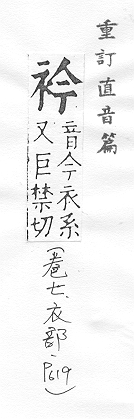 重訂直音篇
衿
音今衣系
又巨禁切
(卷七、衣部、P619)